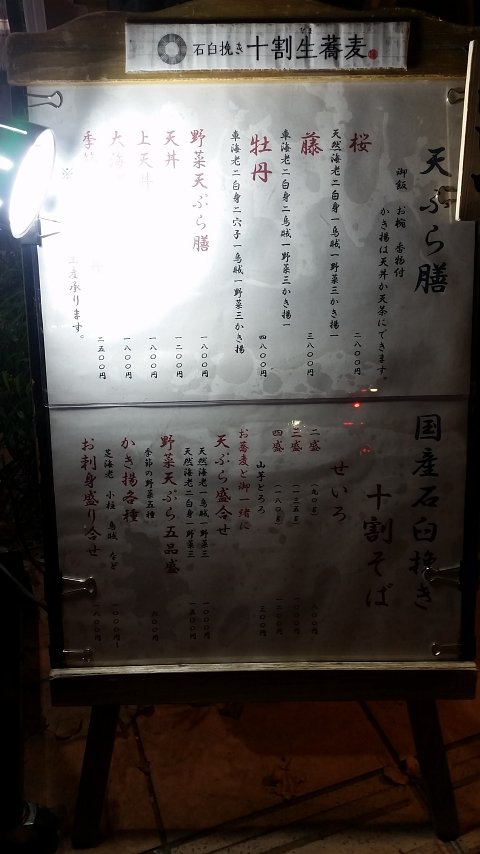 石臼挽き 十割生蕎麦
天ぷら膳
御飯 お椀 香物付
かき揚は天丼か天茶にできます。
桜
天然海老二白身一烏賊一野菜三かき揚一
二八〇〇円
藤
車海老二白身二烏賊一野菜三かき揚一
三八〇〇円
牡丹
車海老二白身二穴子一烏賊一野菜三かき揚
四八〇〇円
野菜天ぷら膳
一八〇〇円
天丼
一二〇〇円
上天丼
一八〇〇円
大海
一八〇〇円
季節
丼
二五〇〇円
※
承ります。
国産石臼挽き
十割そば
せいろ
二盛
八〇〇円
三盛
一〇〇〇円
四盛
一二〇〇円
山芋とろろ
三〇〇円
お蕎麦と御一緒に
天ぷら盛合せ
天然海老一烏賊一野菜三
一〇〇〇円
天然海老二白身一野菜三
一五〇〇円
野菜天ぷら五品盛
季節の野菜五種
六〇〇円
かき揚各種
芝海老 小柱 烏賊 など
一〇〇〇円〜
お刺身盛り合せ
一八〇〇円